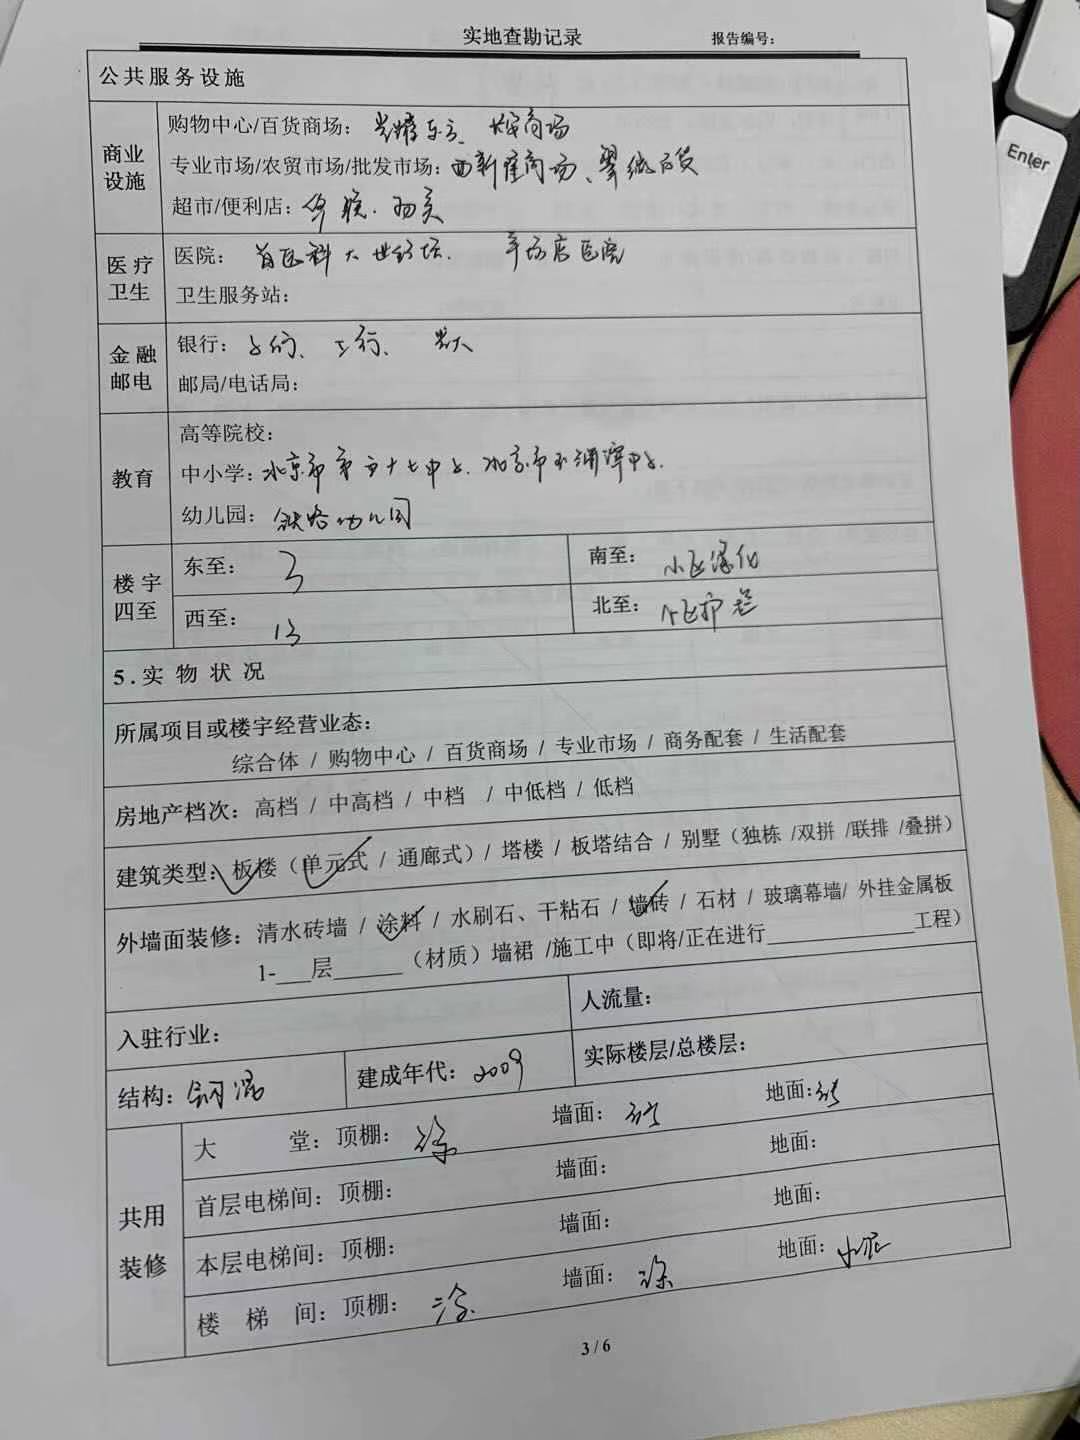 实地查勘记录 报告编号：
公共服务设施
商业设施
购物中心/百货商场： 东方、 商场
专业市场/农贸市场/批发市场： 商场、翠微百货
超市/便利店：华联、物美
医疗卫生
医院：首医科大世纪坛、 羊坊店医院
卫生服务站：
金融邮电
银行： 工行、 光大
邮局/电话局：
教育
高等院校：
中小学：北京市第五十七中学、北京市玉渊潭中学、
幼儿园：铁路幼儿园
楼宇四至
东至：3 南至：小区绿化
西至：13 北至：小区护栏
5.实物状况
所属项目或楼宇经营业态：
综合体 / 购物中心 / 百货商场 / 专业市场 / 商务配套 / 生活配套
房地产档次：高档 / 中高档 / 中档 / 中低档 / 低档
建筑类型：板楼（单元式 / 通廊式）/ 塔楼 / 板塔结合 / 别墅（独栋 /双拼 /联排 /叠拼）
外墙面装修：清水砖墙 / 涂料 / 水刷石、干粘石 / 墙砖 / 石材 / 玻璃幕墙/ 外挂金属板
1-___层______（材质）墙裙 /施工中（即将/正在进行______________工程）
入驻行业： 人流量：
结构：钢混 建成年代：2009 实际楼层/总楼层：
共用装修
大 堂：顶棚：涂 墙面：砖 地面：砖
首层电梯间：顶棚： 墙面： 地面：
本层电梯间：顶棚： 墙面： 地面：
楼 梯 间：顶棚：涂 墙面：涂 地面：水泥
3 / 6
Enter